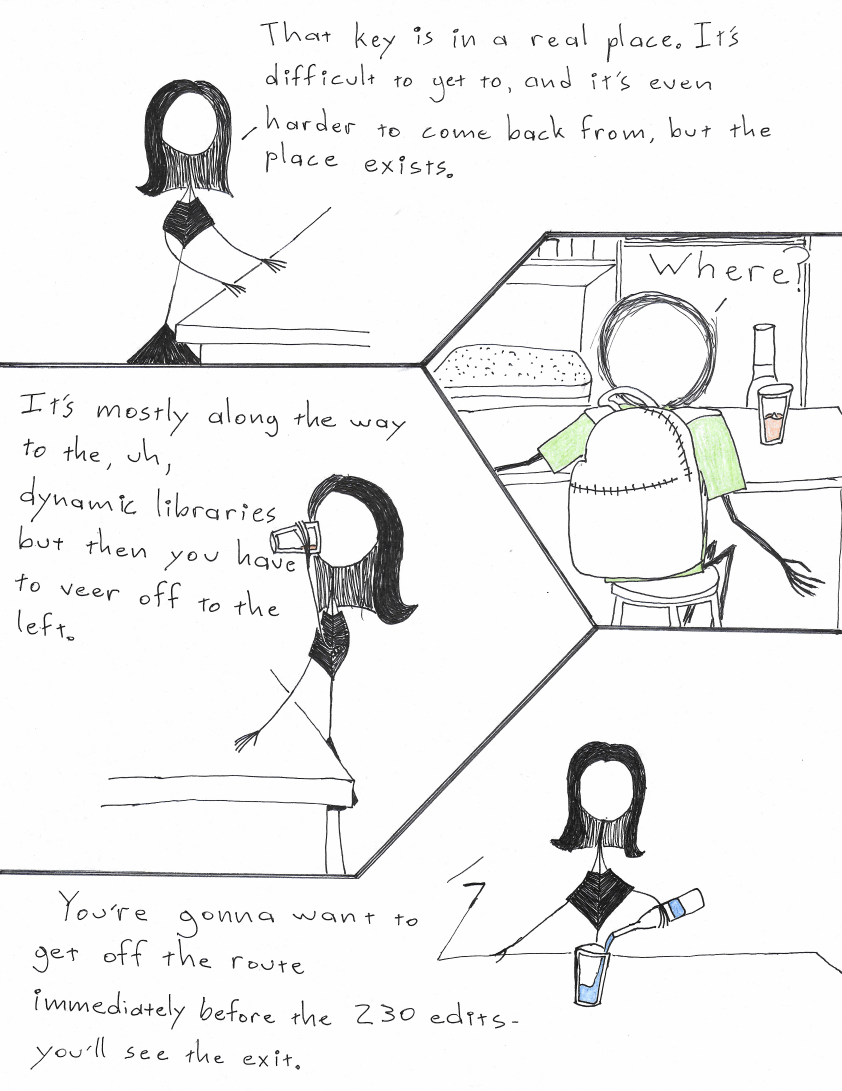 That key is in a real place. It's
difficult to get to, and it's even
harder to come back from, but the
place exists.
Where?
It's mostly along the way
to the, uh,
dynamic libraries
but then you have
to veer off to the
left.
You're gonna want to
get off the route
immediately before the 230 edits-
you'll see the exit.